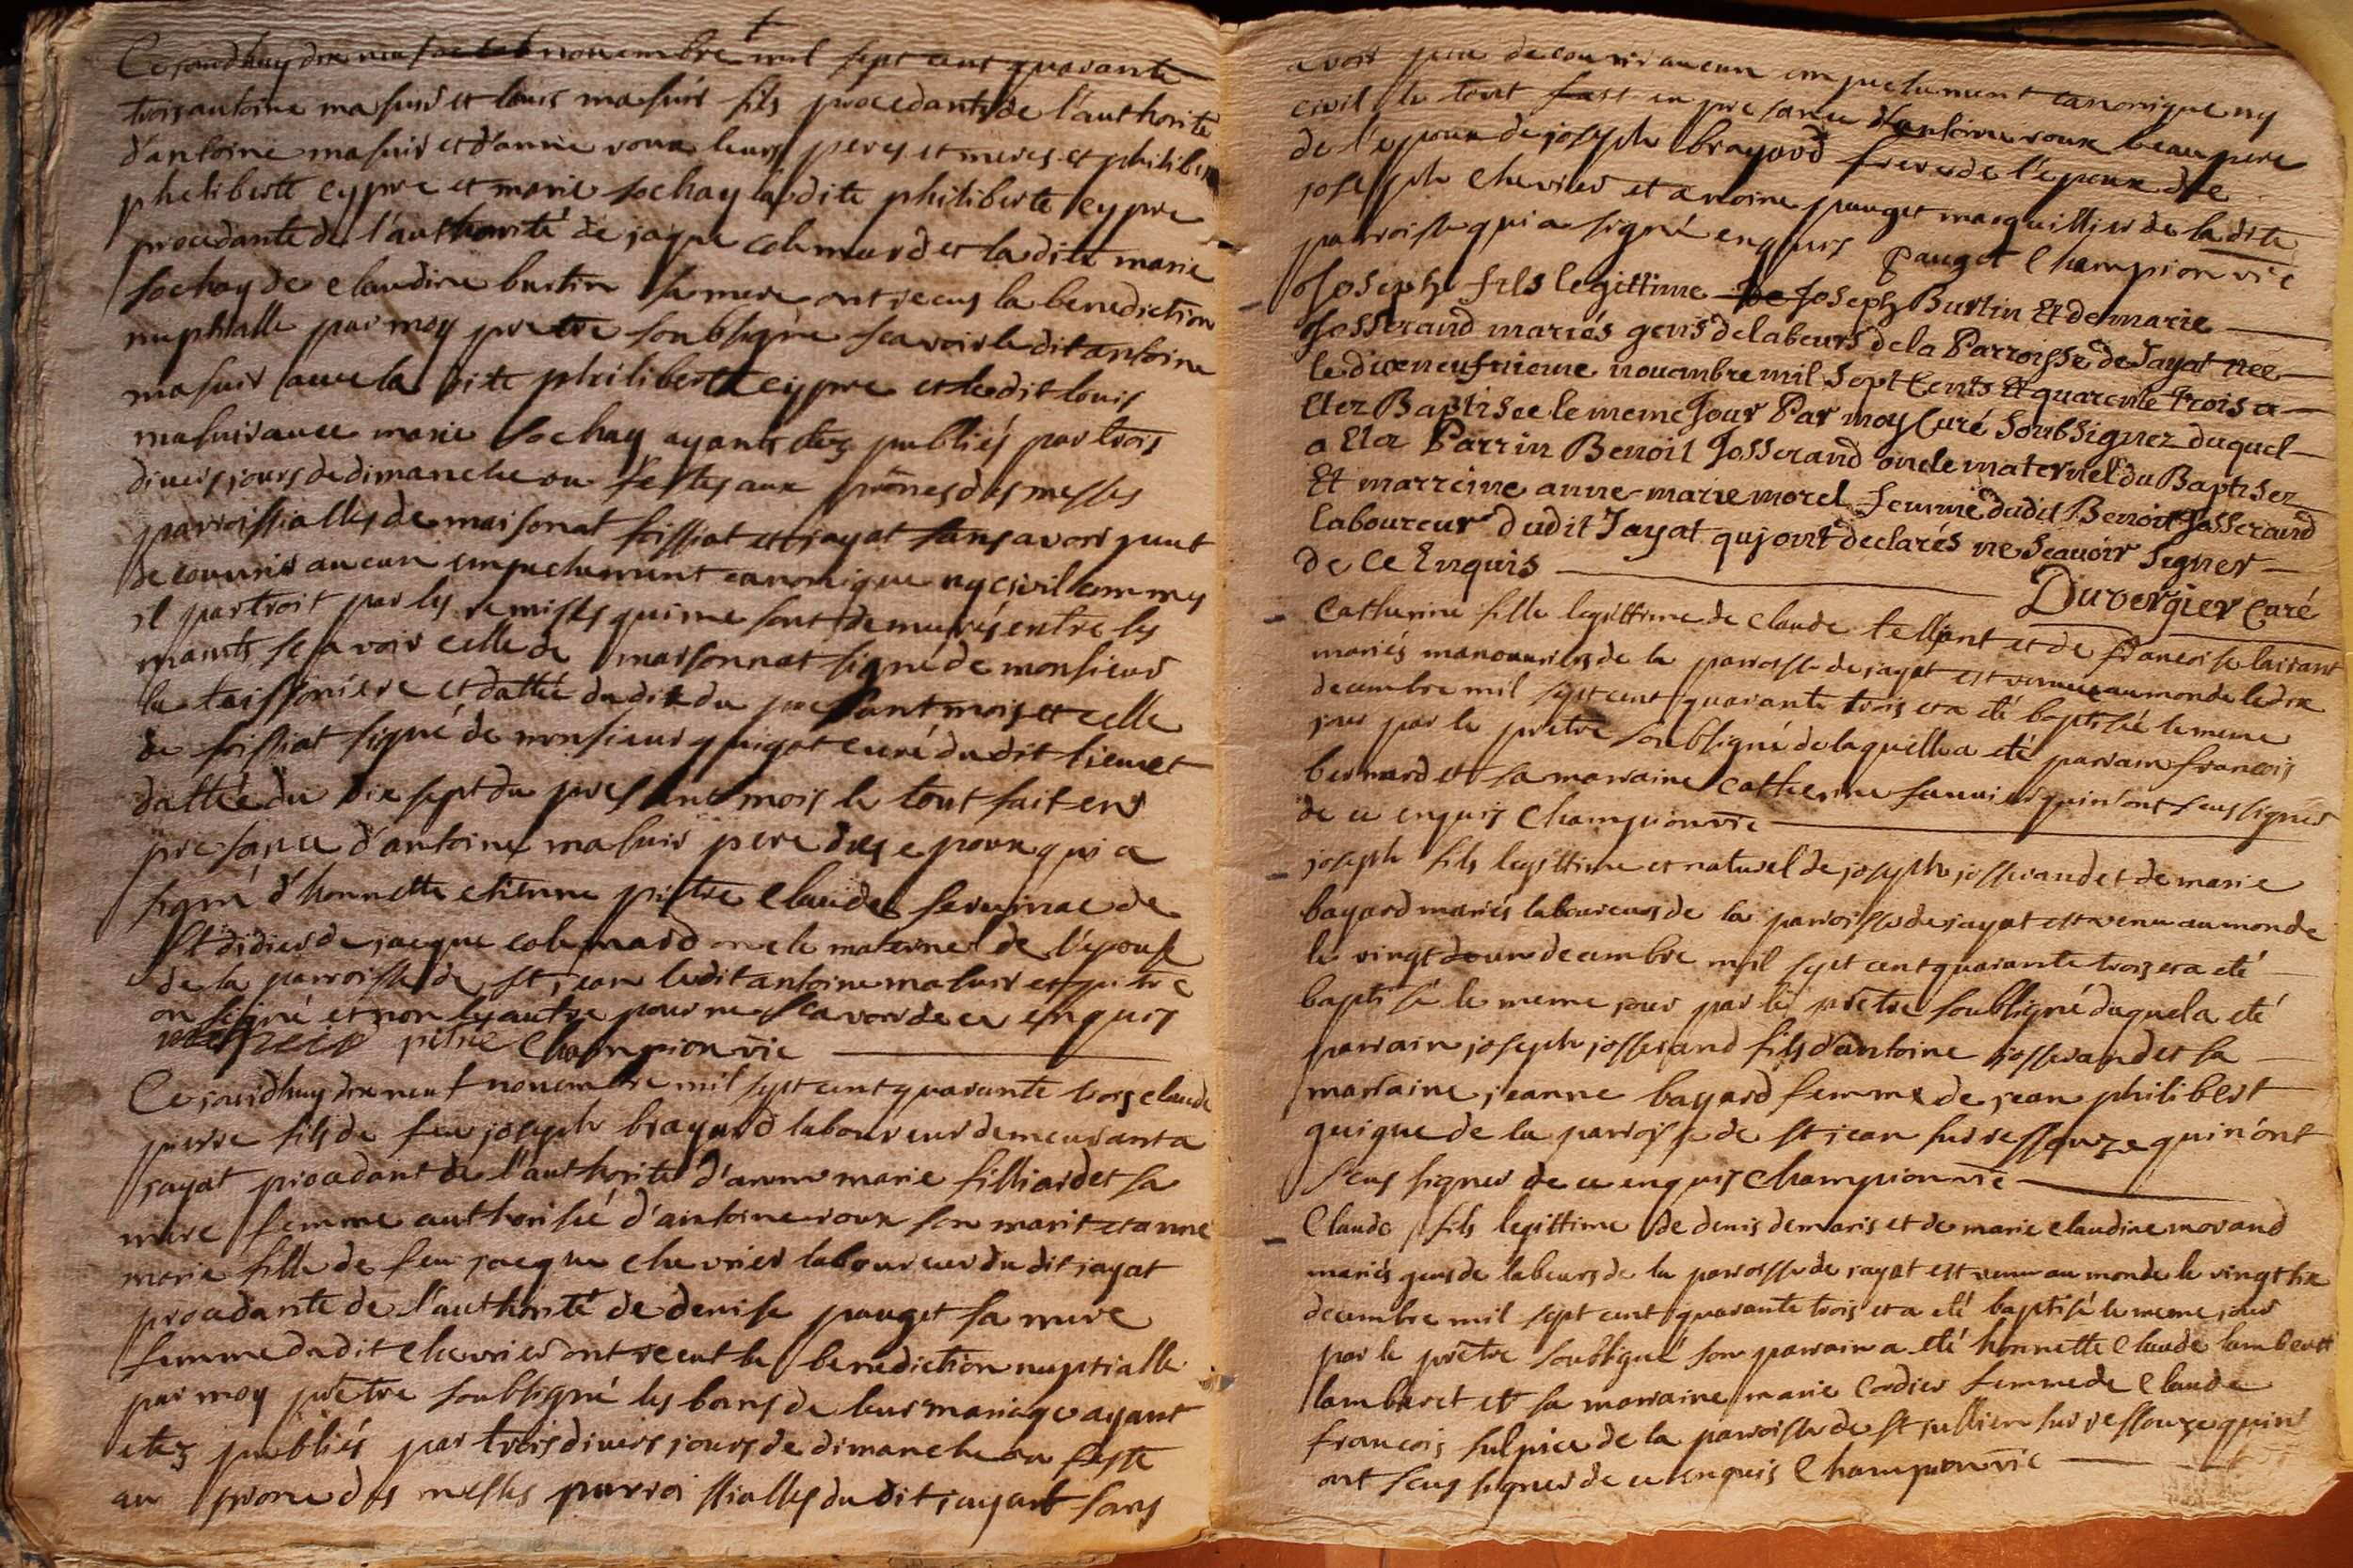 Ce jourdhuy dixneuf novembre mil sept cent quarante
trois antoine masuir et louis masuir fils procedants de l'authorité
d'antoine masuir et d'anne roux leurs peres et meres et philibert
pheliberte cypre et marie sochay la dite philiberte cypre
procedante de l'authorité de jaque colemard et la dite marie
sochay de claudine burtin sa mere ont recus la benediction
nuptialle par moy pretre soubsigné scavoir le dit antoine
masuir avec la dite philiberte cypre et le dit louis
masuir avec marie sochay ayants étez publiés par trois
divers jours de dimanche ou festes aux prônes des messes
parroissialles de maisonat foissiat et jayat sans avoir peut
decouvrir aucun empechement canonique ny civil comme
il paroit par les remises qui me sont demeurés entre les
maints scavoir celle de marsonnat signé de monsieur
la teissoniere et dattée du dix du present mois et celle
de foissiat signé de monsieur guigot curé du dit lieu et
dattée du dix sept du present mois le tout fait en
presance d'antoine masuir pere des epoux qui a
signé d'honnette etienne pitre claude de
St didier de jacque colemard oncle maternel de l'epouse
de la parroisse de st jean le dit antoine masuir et pitre
on signé et non les autre pour ne scavoir de ce enquis
pitre Champion vic
Ce jourdhuy dixneuf novembre mil sept cent quarante trois claude
pierre fils de feu joseph brayard laboureur demeurant a
jayat procedant de l'authorité d'anne marie filliardet sa
mere femme authorisée d'antoine roux son marit et anne
marie fille de feu jacque chevrier laboureur du dit jayat
procedante de l'authorité de denise pauget sa mere
femme du dit chevrier ont recent la benediction nuptialle
par moy prêtre soubsigné les bans de leur mariage ayant
etez publiés par trois divers jours de dimanche ou feste
au prone des messes parroissialles du dit jayat sans
avoir peu decouvrir aucun empechement canonique ny
civil le tout fast en presance d'antoine roux beau pere
de l'epoux de joseph brayard frere de l'epoux de
joseph chevrier et antoine pauget marguillier de la dite
parroisse qui a signé enquis pauget Champion vic
Joseph fils legittime de Joseph Burtin Et de marie
Josserand mariés gens de labeurs de la Parroisse de Jayat nee
le dixneufvieme novembre mil Sept Cents Et quarente trois a
Etez Baptisee le meme Jour Par moy Curé Soubsignez duquel
a Eter Parrin Benoit Josserand oncle maternel du Baptisez
Et marreine anne-marie morel femme dudit Benoit Josserand
laboureur dudit Jayat qui ont declarés ne Scavoir Signer
de Ce Enquis
Duvergier Curé
Catherine fille legittime de claude tellant et de francoise
mariés manouvriers de la parroisse de jayat est venue au monde le dix
decembre mil sept cent quarante trois et a eté baptisée le meme
jour par le prêtre soubsigné de laquelle a eté parrain francois
bernard et sa marraine Catherine qui n'ont seus signer
de ce enquis Champion vic
joseph fils legittime et naturel de joseph josserand et de marie
bayard mariés laboureurs de la parroisse de jayat est venu au monde
le vingt deux decembre mil sept cent quarante trois et a eté
baptisé le meme jour par le prêtre soubsigné duquel a eté
parrain joseph josserand fils d'antoine josserand et sa
marraine jeanne bayard femme de jean philibert
guigue de la parroisse de st jean sur ressouze qui n'ont
seus signer de ce enquis Champion vic
Claude fils legittime de denis demaris et de marie claudine morand
mariés gens de labeurs de la parroisse de jayat est venu au monde le vingt six
decembre mil sept cent quarante trois et a eté baptisé le meme jour
par le prêtre soubsigné son parrain a eté honnette claude lambert
lambaret et sa marraine marie cordier femme de claude
francois sulpice de la parroisse de st jullien sur ressouze qui n'
ont seus signer de ce enquis Champion vic